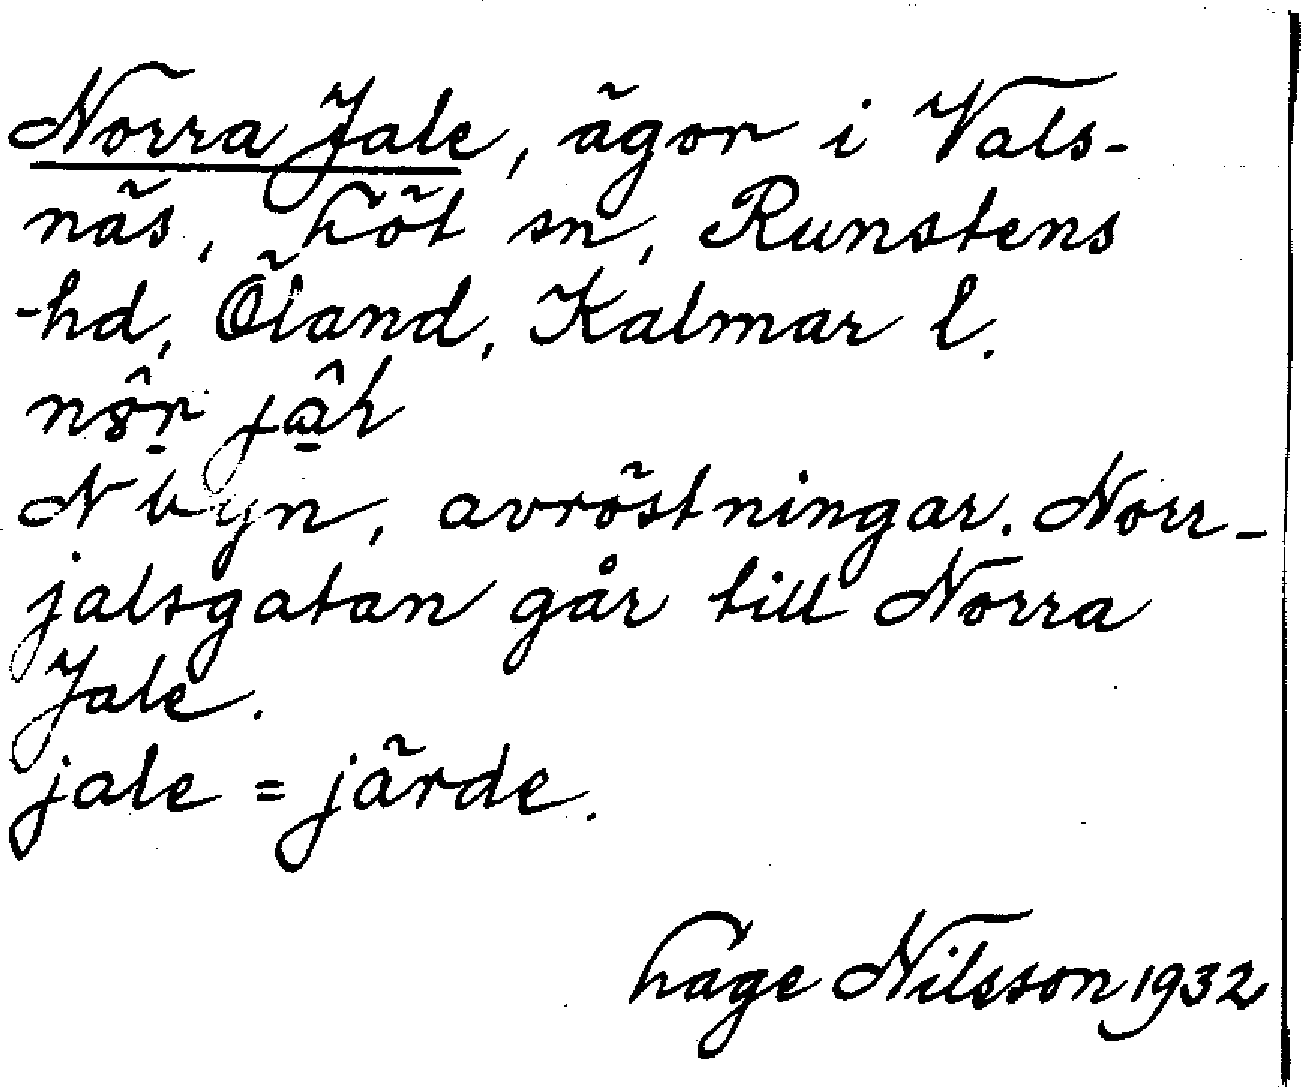 Norra Jale, ägor i Vals-
näs, Löt sn, Runstens
-hd, Öland, Kalmar l.
N byn, avröstningar. Norr-
jalsgatan går till Norra
Jale.
jale = järde.
Hage Nilsson 1932